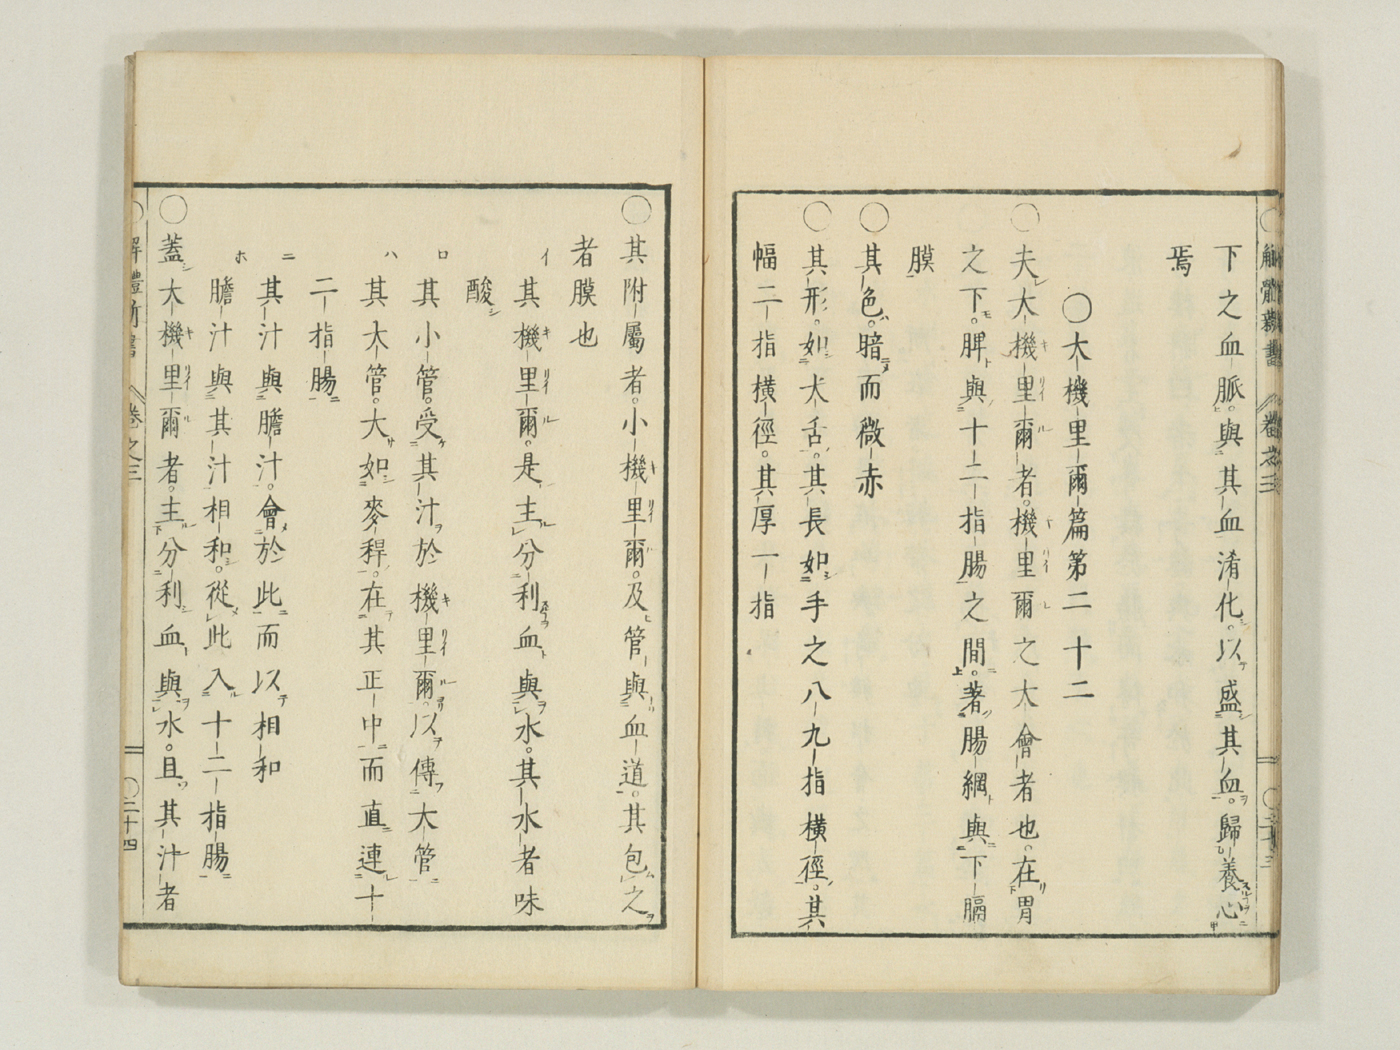 下之血脈。與其血淆化。以盛其血。歸養心
焉
〇大機里爾篇第二十二
〇夫大機里爾者。機里爾之大會者也。在胃
之下。脾與十二指腸之間。著腸網與下膈
膜
〇其色。暗而微赤
〇其形。如犬舌。其長如手之八九指橫徑。其
幅二指橫徑。其厚一指
〇其附屬者。小機里爾。及管與血道。其包之
者膜也
イ 其機里爾。是主分利血與水。其水者味
酸
ロ 其小管。受其汁於機里爾。以傳大管
ハ 其大管。大如麥稈。在其正中而直連十
二指腸
ニ 其汁與膽汁。會於此而以相和
ホ 膽汁與其汁相和。從此入十二指腸
〇蓋大機里爾者。主分利血與水。且其汁者
解體新書 卷之三 〇二十四